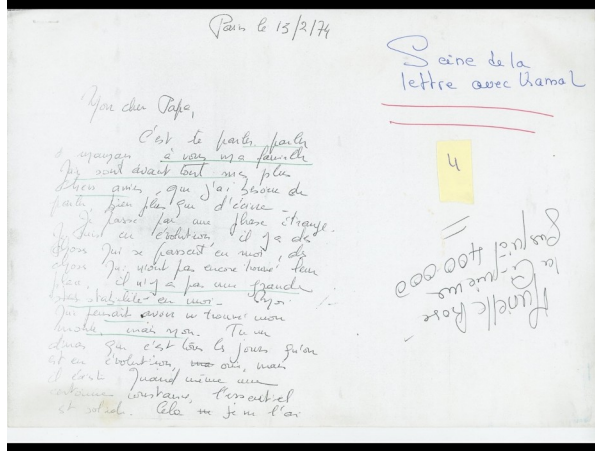 Paris le 13/2/74
Scène de la
lettre avec Kamal
4
Mon cher Papa,
C'est te parler, parler
à maman à vous ma famille
qui sont avant tout mes plus
chers amis, que j'ai besoin de
parler bien plus que d'écrire.
Je passe par une phase étrange.
Je suis en évolution, il y a des
choses qui se passent en moi, des
choses qui n'ont pas encore trouvé leur
place, il n'y a pas une grande
stabilité en moi.
Qui pensait avoir trouvé mon
mode, mais non. Tu me
diras que c'est tous les jours qu'on
est en évolution, oui, mais
il faut quand même une
certaine constance, l'essentiel
est solide. Cela je ne l'ai
Murielle Rose
400 000